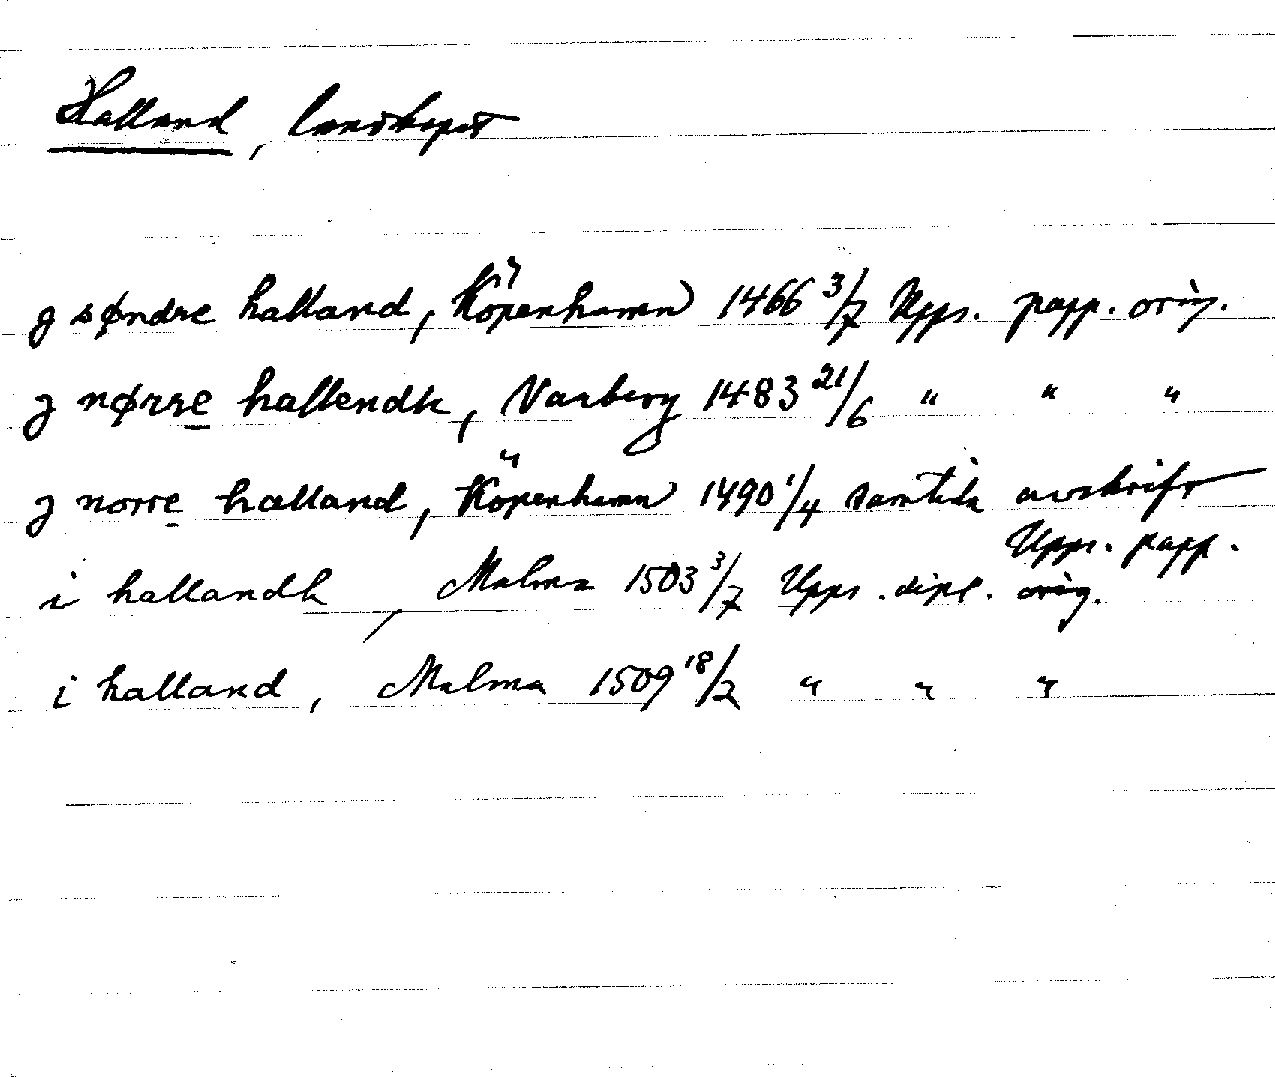 Halland, landskapet
J søndre halland, Köpenhamn 1466 3/7 Upps. papp. orig.
J nørre hallendh, Varberg 1483 21/6 " " "
J norre halland, Köpenhamn 1490 1/4 samtida avskrift
Upps. papp.
i hallandh, Malmö 1503 3/7 Upps. dipl. orig.
i halland, Malmö 1509 18/2 " " "